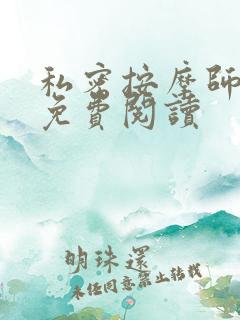 私密按摩師
免費閱讀
明珠還
未經同意禁止轉載